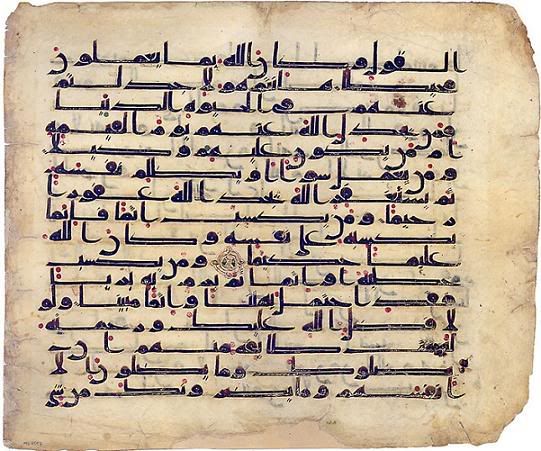 القول وكان الله بما يعملون
محيطا هانتم هولا جدلتم
عنهم في الحيوة الدنيا
فمن يجدل الله عنهم يوم القيمه
ام من يكون عليهم وكيلا
ومن يعمل سوا او يظلم نفسه
ثم يستغفر الله يجد الله غفورا
رحيما ومن يكسب اثما فانما
يكسبه على نفسه وكان الله
عليما حكيما ومن يكسب
خطيه او اثما ثم يرم به بريا
فقد احتمل بهتنا واثما مبينا ولو
لا فضل الله عليك ورحمته
لهمت طايفه منهم ان
يضلوك وما يضلون الا
انفسهم وما يضرونك من شي